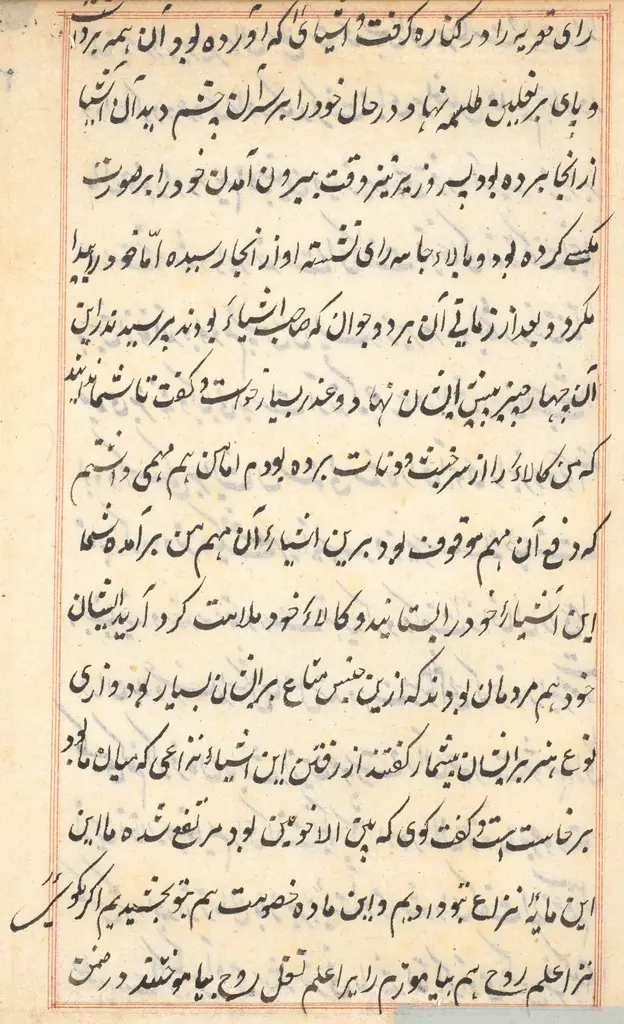 رای تعزیه را در کناره گرفت و اشیای که آورده بود آن همه بر
و پای بر نعلین طلسمه نهاد در حال خود را بر سر آن چشم دید آن اشیا
از انجا برده بود پس وزیر نیز وقت بیرون آمدن خود را بر صورت
مکسی کرده بود و بالاء جامه رای نشسته او از انجا رسیده اما خود را پیدا
نکرد و بعد از زمانی آن هر دو جوان که صاحب اشیاء بودند پرسیدند این
آن چهار چیز پیش ایشان نهاد و عذر بسیار خواست و گفت تا شما ندانید
که من کالاء را از سر خبث و دنات برده بودم اما من هم مهمی داشتم
که دفع آن مهم موقوف بود برین اشیاء آن مهم من برآمده شما
این اشیاء خود را بستانید و کالاء خود ملامت کرد آرید ایشان
خود هم مردمان بودند که ازین جنس متاع بر ایشان بسیار بود و ازی
نوع هنر بر ایشان بیشمار گفتند از رفتن این اشیاء نزاعی که میان ما بود
برخاست است و گفت کوی که بین الاخوین بود مرتفع شده ما این
این مایهٔ نزاع بتو دادیم و این ماده خصومت هم بتو بخشیدیم اگر بگوئی
ترا علم روح هم بیاموزیم رای را علم نقل روح بیاموختند در ضمن